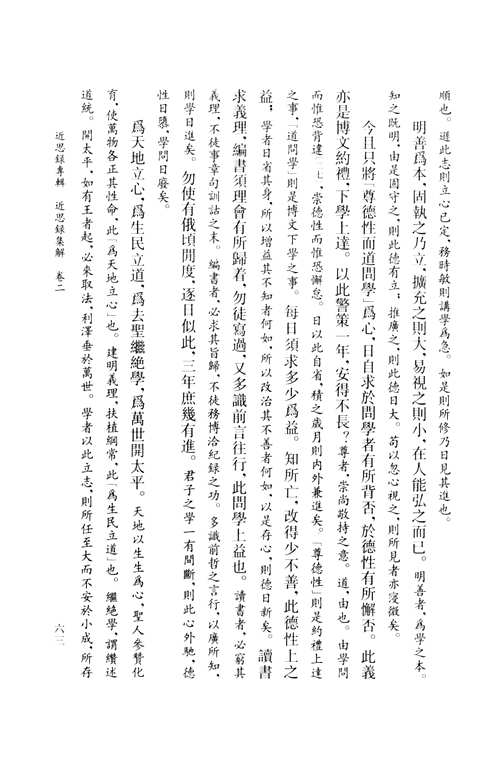 順也。遜此志則立心已定，務時敏則講學爲急。如是則所修乃日見其進也。
明善爲本，固執之乃立，擴充之則大，易視之則小，在人能弘之而已。明善者，爲學之本。
知之既明，由是固守之，則此德有立；推廣之，則此德日大。苟以忽心視之，則所見者亦寖微矣。
今且只將「尊德性而道問學」爲心，日自求於問學者有所背否，於德性有所懈否。此義
亦是博文約禮，下學上達。以此警策一年，安得不長？尊者，崇尚敬持之意。道，由也。由學問
而惟恐背違〔七〕，崇德性而惟恐懈怠。日以此自省，積之歲月則內外兼進矣。「尊德性」則是約禮上達
之事，「道問學」則是博文下學之事。每日須求多少爲益。知所亡，改得少不善，此德性上之
益；學者日省其身，所以增益其不知者何如，所以改治其不善者何如，以是存心，則德日新矣。讀書
求義理，編書須理會有所歸着，勿徒寫過，又多識前言往行，此問學上益也。讀書者，必窮其
義理，不徒事章句訓詁之末。編書者，必求其旨歸，不徒務博洽紀錄之功。多識前哲之言行，以廣所知，
則學日進矣。勿使有俄頃閒度，逐日似此，三年庶幾有進。君子之學一有間斷，則此心外馳，德
性日隳，學問日廢矣。
爲天地立心，爲生民立道，爲去聖繼絕學，爲萬世開太平。天地以生生爲心，聖人參贊化
育，使萬物各正其性命，此「爲天地立心」也。建明義理，扶植綱常，此「爲生民立道」也。繼絕學，謂纘述
道統。開太平，如有王者起，必來取法，利澤垂於萬世。學者以此立志，則所任至大而不安於小成，所存
近思錄專輯　近思錄集解　卷二　六三